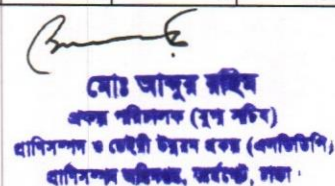 মোঃ আব্দুর রহিম
প্রকল্প পরিচালক (যুগ্ম সচিব)
প্রাণিসম্পদ ও ডেইরী উন্নয়ন প্রকল্প (এলডিডিপি)
প্রাণিসম্পদ অধিদপ্তর, ফার্মগেট, ঢাকা।